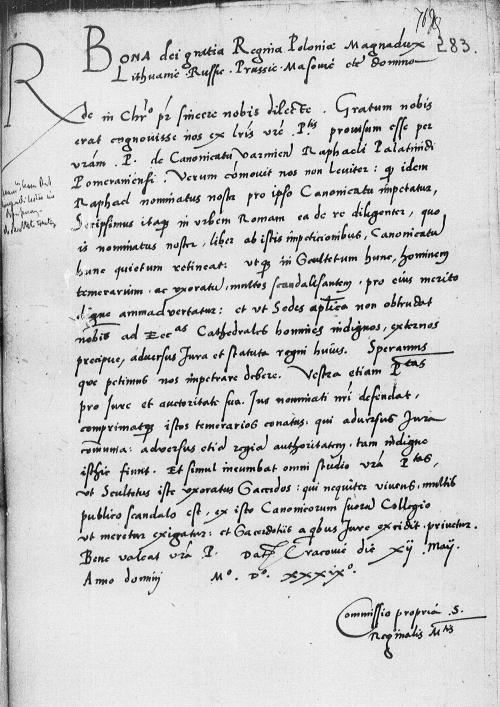 283.
BONA dei gratia Regina Poloniæ Magnadux
Lithuanie Russe. Prussie. Masouie etc domina
Rde in Chro pr sincere nobis dilecte. Gratum nobis
erat cognouisse nos ex lris vre Ptis prouisum esse per
vram. P. de Canonicatu Varmien Raphaeli Palatinidi
Pomeraniensi. Verum comouit nos non leuiter: q idem
Raphael nominatus nostr pro ipso Canonicatu impetatur,
Scripsimus itaq in vrbem Romam ea de re diligenter, quo
is nominatus nostr, liber ab istis impeticionibus, Canonicatu
hunc quietum retineat: utq in Scultetum hunc, hominem
temerarium, ac vxoratu, multos scandalisantem, pro eius merito
digne animaduertatur: et ut Sedes aplica non obtrudat
nobis ad Eccas Cathedrales homines indignos, externos
precipue, aduersus Jura et statuta regni huius. Speramus
que petimus nos impetrare debere. Vestra etiam Ptas
pro iure et auctoritate sua. Jus nominati nri defendat,
comprimatq istos temerarios conatus, qui aduersus Jura
comunia: aduersus etia regia authoritatem, tam indigne
isthic fiunt. Et simul incumbat omni studio vra Ptas,
vt Scultetus iste vxoratus Sacerdos: qui nequiter viuens, multis
publico scandalo est, ex isto Canonicorum suoru Collegio
ut meretur exigatur: et Sacerdotiis a qbus Jure excidit, priuetur.
Bene valeat vra P. Dat Cracouie die xij Maij.
Anno domini Mo. Do. xxxixo.
Commissio propria S.
Reginalis Mtis